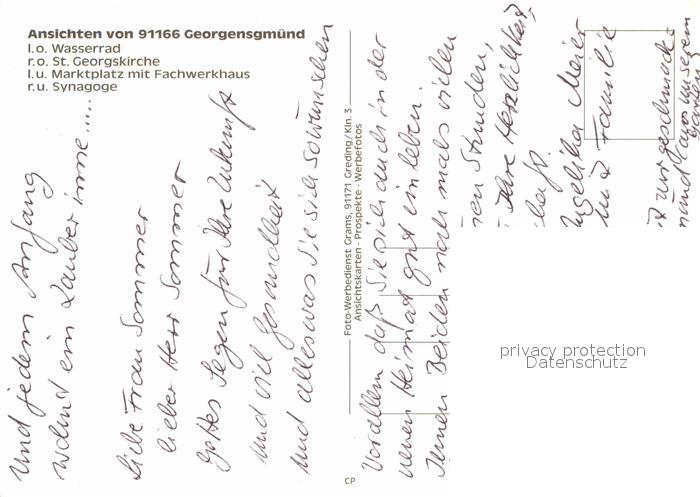 Ansichten von 91166 Georgensgmünd
l.o. Wasserrad
r.o. St. Georgskirche
l.u. Marktplatz mit Fachwerkhaus
r.u. Synagoge
Und jedem Anfang
wohnt ein Zauber inne....
Liebe Frau Sommer
lieber Herr Sommer
Gottes Segen für Ihre Zukunft
und viel Gesundheit
und alles was Sie sich so wünschen
Foto-Werbedienst Grams, 91171 Greding/Kln. 3
Ansichtskarten - Prospekte - Werbefotos
CP
Vor allem daß Sie sich auch in der
neuen Heimat gut einleben.
Ihnen Beiden nochmals vielen
Stunden,
Ihre Herzlichkeit,
Angelika Meier
und Familie
privacy protection
Datenschutz